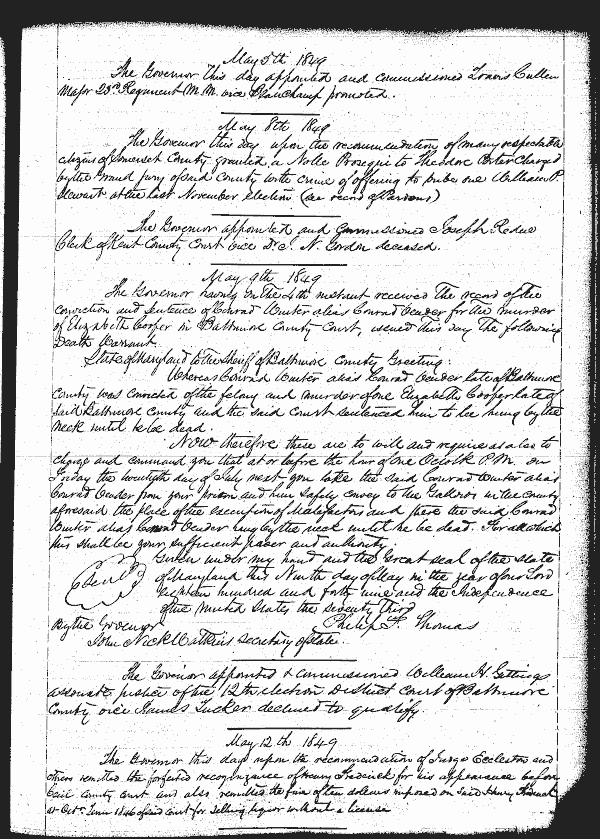 May 5th 1849
The Governor this day appointed and commissioned Travis Cullen
Major 23rd Regiment M. M. vice Beauchamp promoted.
May 8th 1849
The Governor this day upon the recommendation of many respectable
citizens of Somerset County granted a Nolle Prosequi to Theodore Charged
by the Grand jury of said County with crime of offering to bribe one William P.
Stewart at the last November election. (see record of Pardons)
The Governor appointed and Commissioned Joseph Redue
Clerk of Kent County Court vice Dr. C. N. Gordon deceased.
May 9th 1849
The Governor having on the 4th instant received the record of the
conviction and sentence of Conrad Vinter alias Conrad Vender for the murder
of Elizabeth Cooper in Baltimore County Court, issued this day the following
Death Warrant.
State of Maryland to the Sheriff of Baltimore County Greeting:
Whereas Conrad Vinter alias Conrad Vender late of Baltimore
County was convicted of the felony and murder of one Elizabeth Cooper late of
said Baltimore County and the said Court sentenced him to be hung by the
neck until he be dead.
Now therefore these are to will and require as also to
charge and command you that at or before the hour of one Oclock P.M. on
Friday the twentieth day of July next you take the said Conrad Vinter alias
Conrad Vender from your prison and him safely convey to the Gallows in the county
aforesaid the place of the execution of Malefactors and there the said Conrad
Vinter alias Conrad Vender hang by the neck until he be dead. For all which
this shall be your sufficient power and authority.
Given under my hand and the Great seal of the state
of Maryland this Ninth day of May in the year of our Lord
eighteen hundred and forty nine and the Independence
of the United States the seventy third
By the Governor Philip F. Thomas
John Nick Watkins Secretary of State.
The Governor appointed & commissioned William H. Gettings
associate justice of the 12th election District Court of Baltimore
County vice James Tucker declined to qualify.
May 12th 1849
The Governor this day upon the recommendation of Judge Eccleston and
others remitted the forfeited recognizance of Henry for his appearance before
Cecil county court and also remitted the fine of ten dollars imposed on said Henry
at Octr. Term 1846 of said court for selling liquor without a license